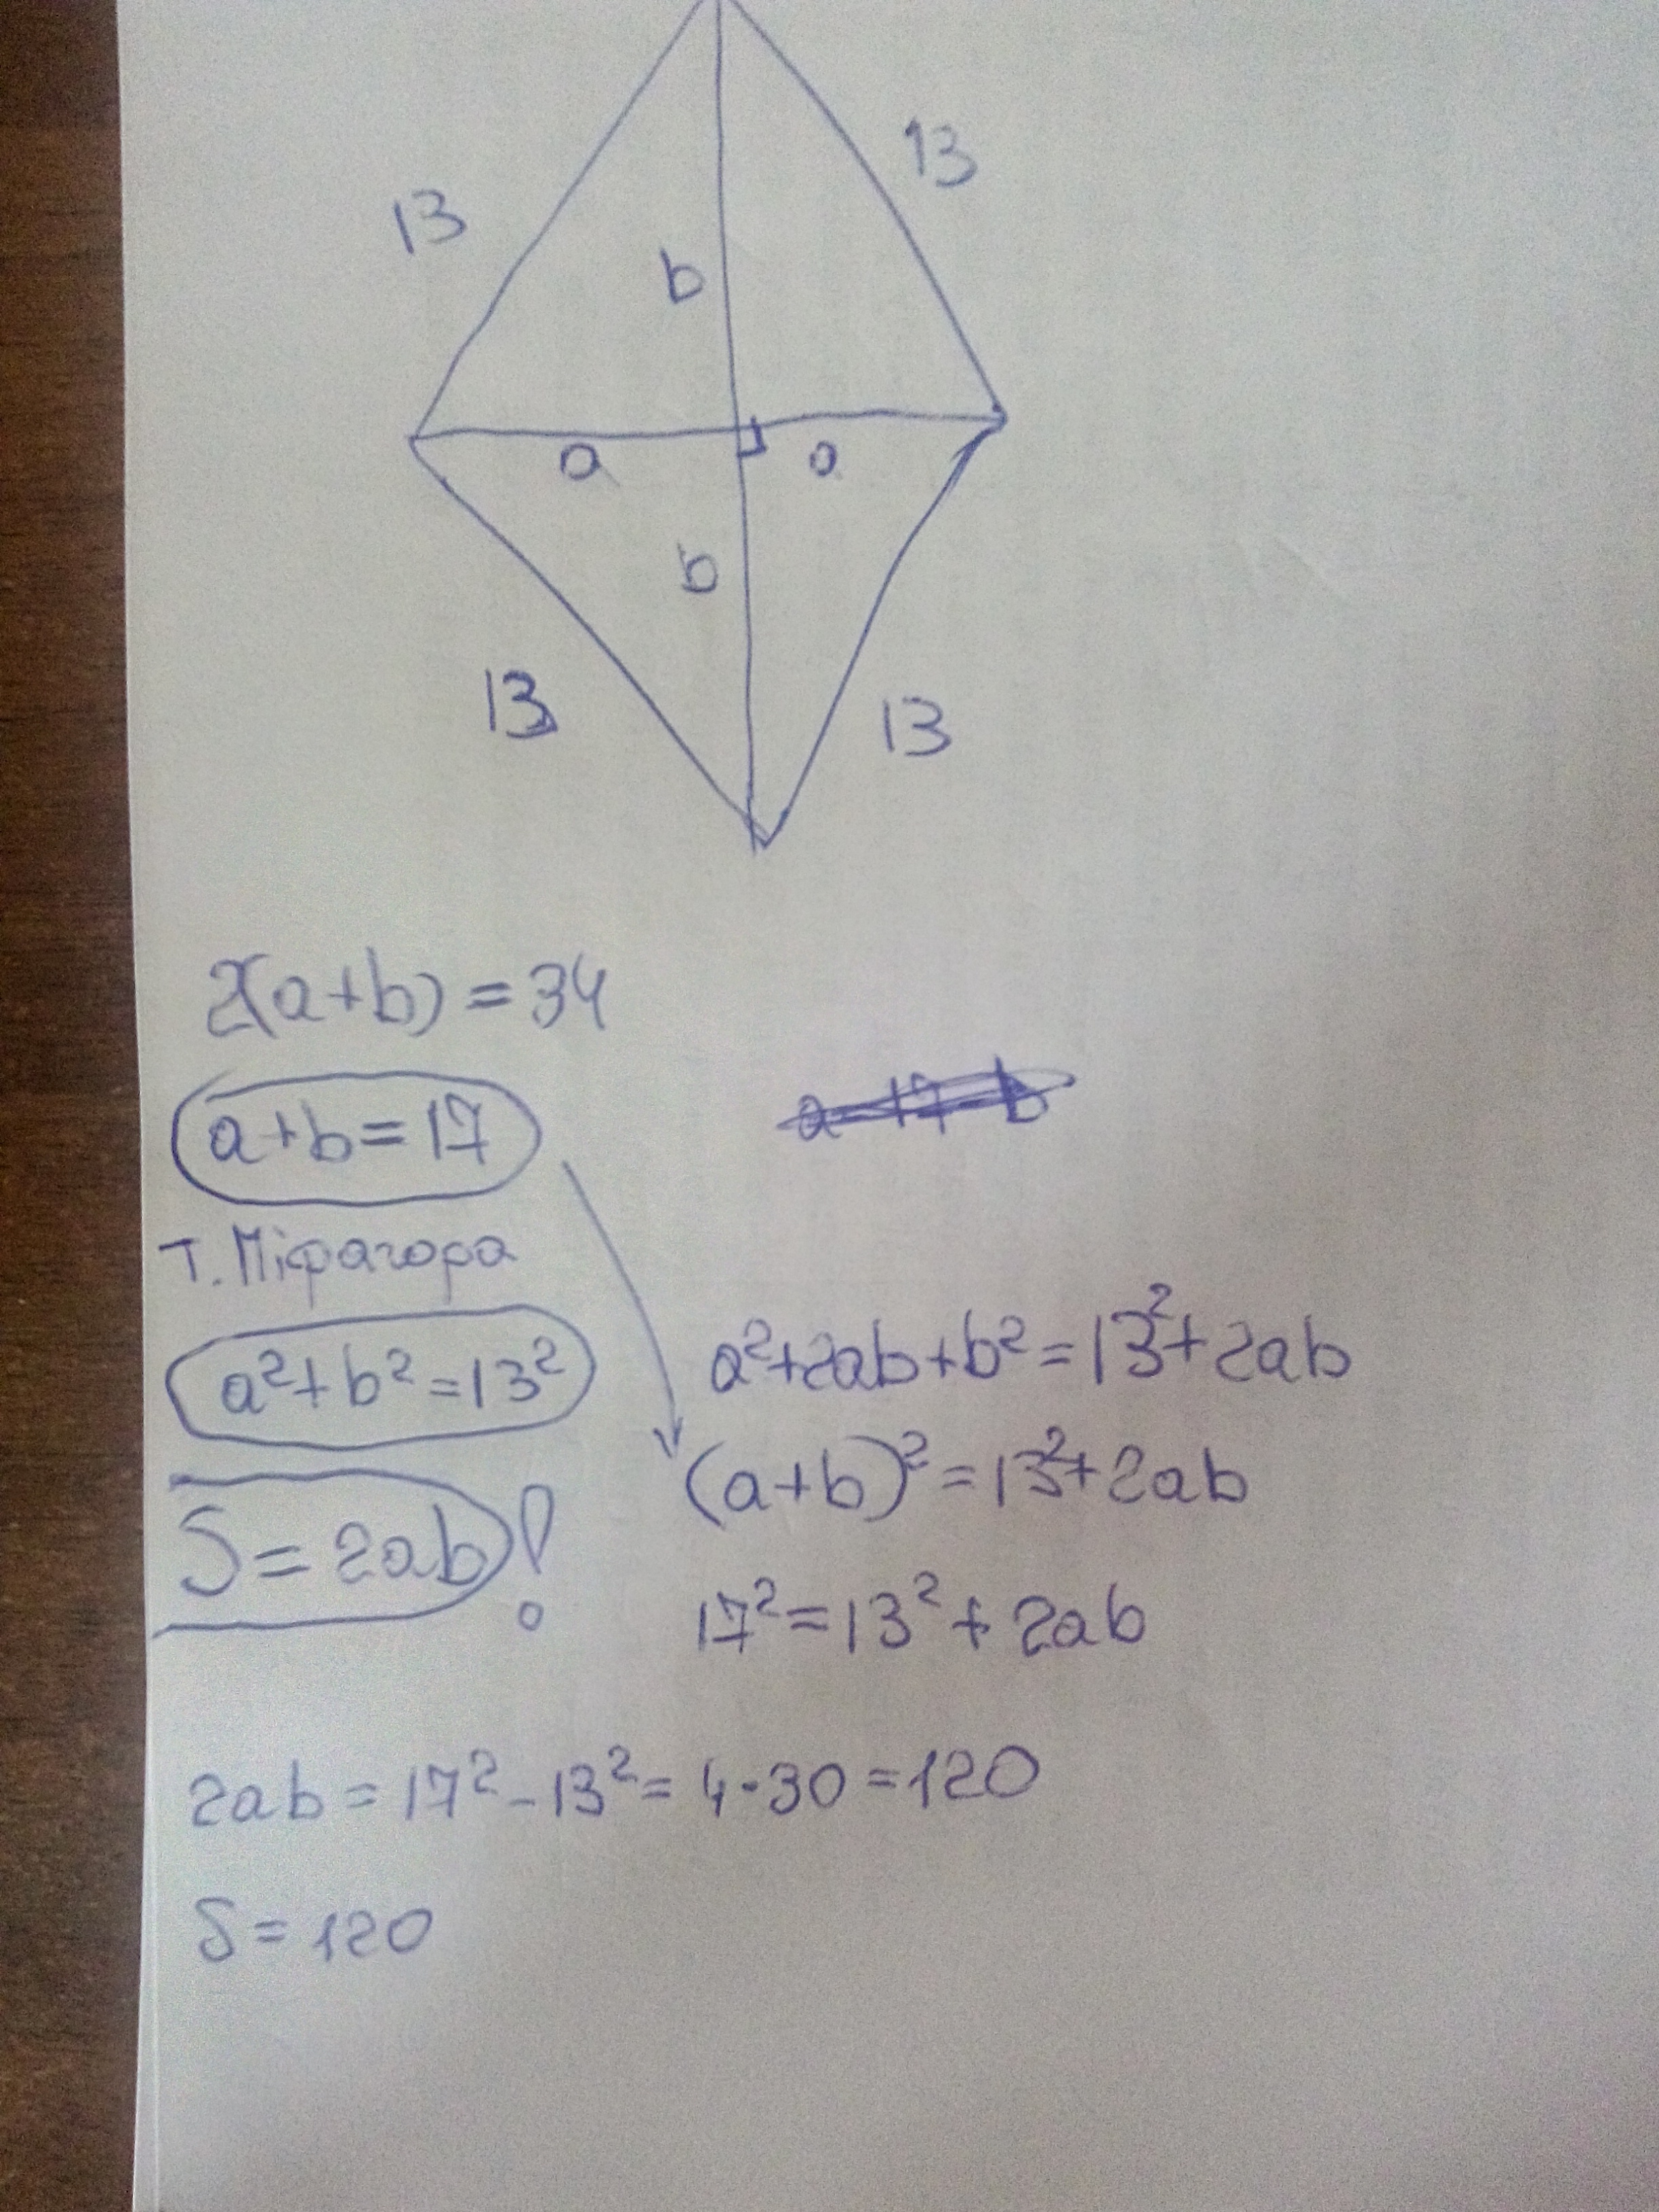 13
13
b
a
a
b
13
13
2(a+b) = 34
a+b=17
a=17-b
Т. Піфагора
a²+b²=13²
a²+2ab+b²=13²+2ab
(a+b)²=13²+2ab
S=2ab!
17²=13²+2ab
2ab=17²-13²=4·30=120
S=120